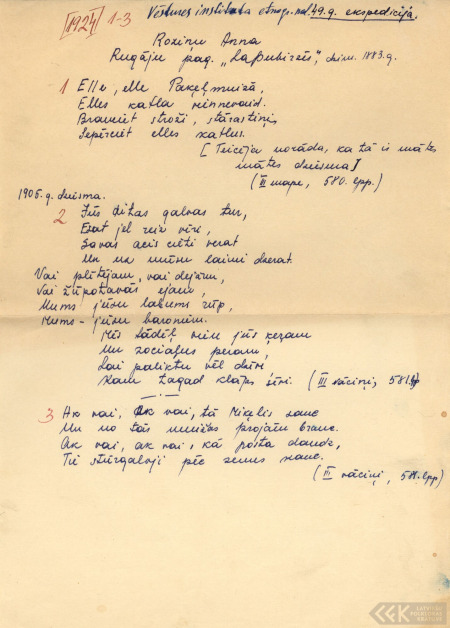 [1924] 1-3 Vēstures institūta etnogr. nod. 49.g. ekspedīcija.
Roziņu Anna
Rugāju pag. „Lapubirzēs", dzim. 1883.g.
1 Elle, elle Pakuļmuižā,
Elles katla
Brauciet stroži, stārastiņi,
elles katlus.
[Teicēja norāda, ka tā ir mātes
mātes dziesma]
(II mape, 580. lpp.)
1905.g. dziesma.
2 Jūs citas galvas tur,
Esat jel reiz vīri,
Savas acis cieti verat
Un no mūsu laimi dzerat.
Vai plūtējam, vai dejām,
Vai žūpošanās ejam,
Mums jūsu labums rūp,
Mums - jūsu baroniem.
Mēs tādēļ vien jūs ķeram
Un sociāļus peram,
Lai paliktu vēl dzīvi
Kam tagad klājas sīvi. (III vāciņi, 581.)
3 Ak vai, ak vai, tā Miķelis sauc
Un no tās muižas projām brauc.
Ak vai, ak vai, kā posta daudz,
Tie stūrgalvji pēc zemes sauc.
(III vāciņi, 581. lpp)
LATVIEŠU
FOLKLORAS
KRĀTUVE